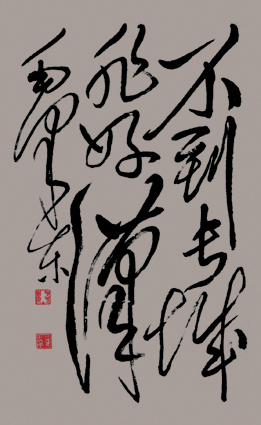 不到长城
非好汉
毛泽东